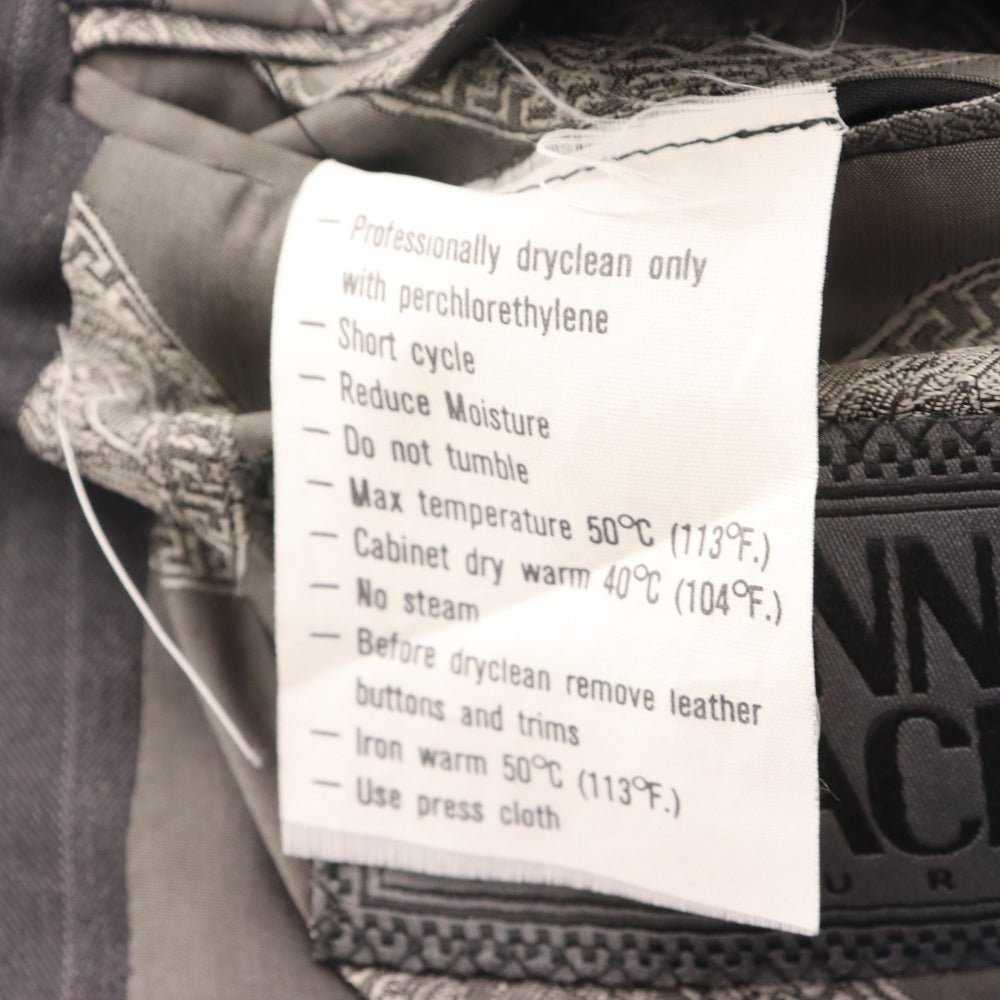 – Professionally dryclean only
with perchlorethylene
– Short cycle
– Reduce Moisture
– Do not tumble
– Max temperature 50°C (113°F.)
– Cabinet dry warm 40°C (104°F.)
– No steam
– Before dryclean remove leather
buttons and trims
– Iron warm 50°C (113°F.)
– Use press cloth